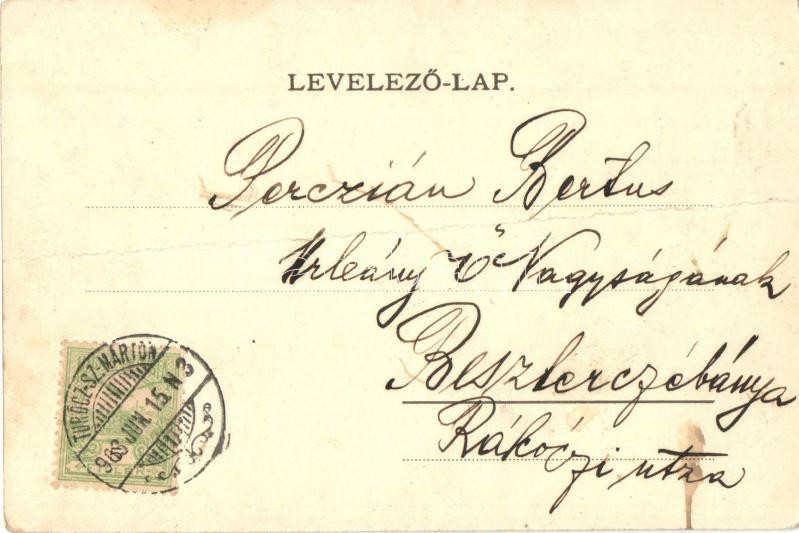 LEVELEZŐ-LAP.
Perczián Bertus
Urleány Ő Nagyságának
Beszterczébánya
Rákóczi utza
TURÓCZ-SZ-MÁRTON
JUN. 15. N 3